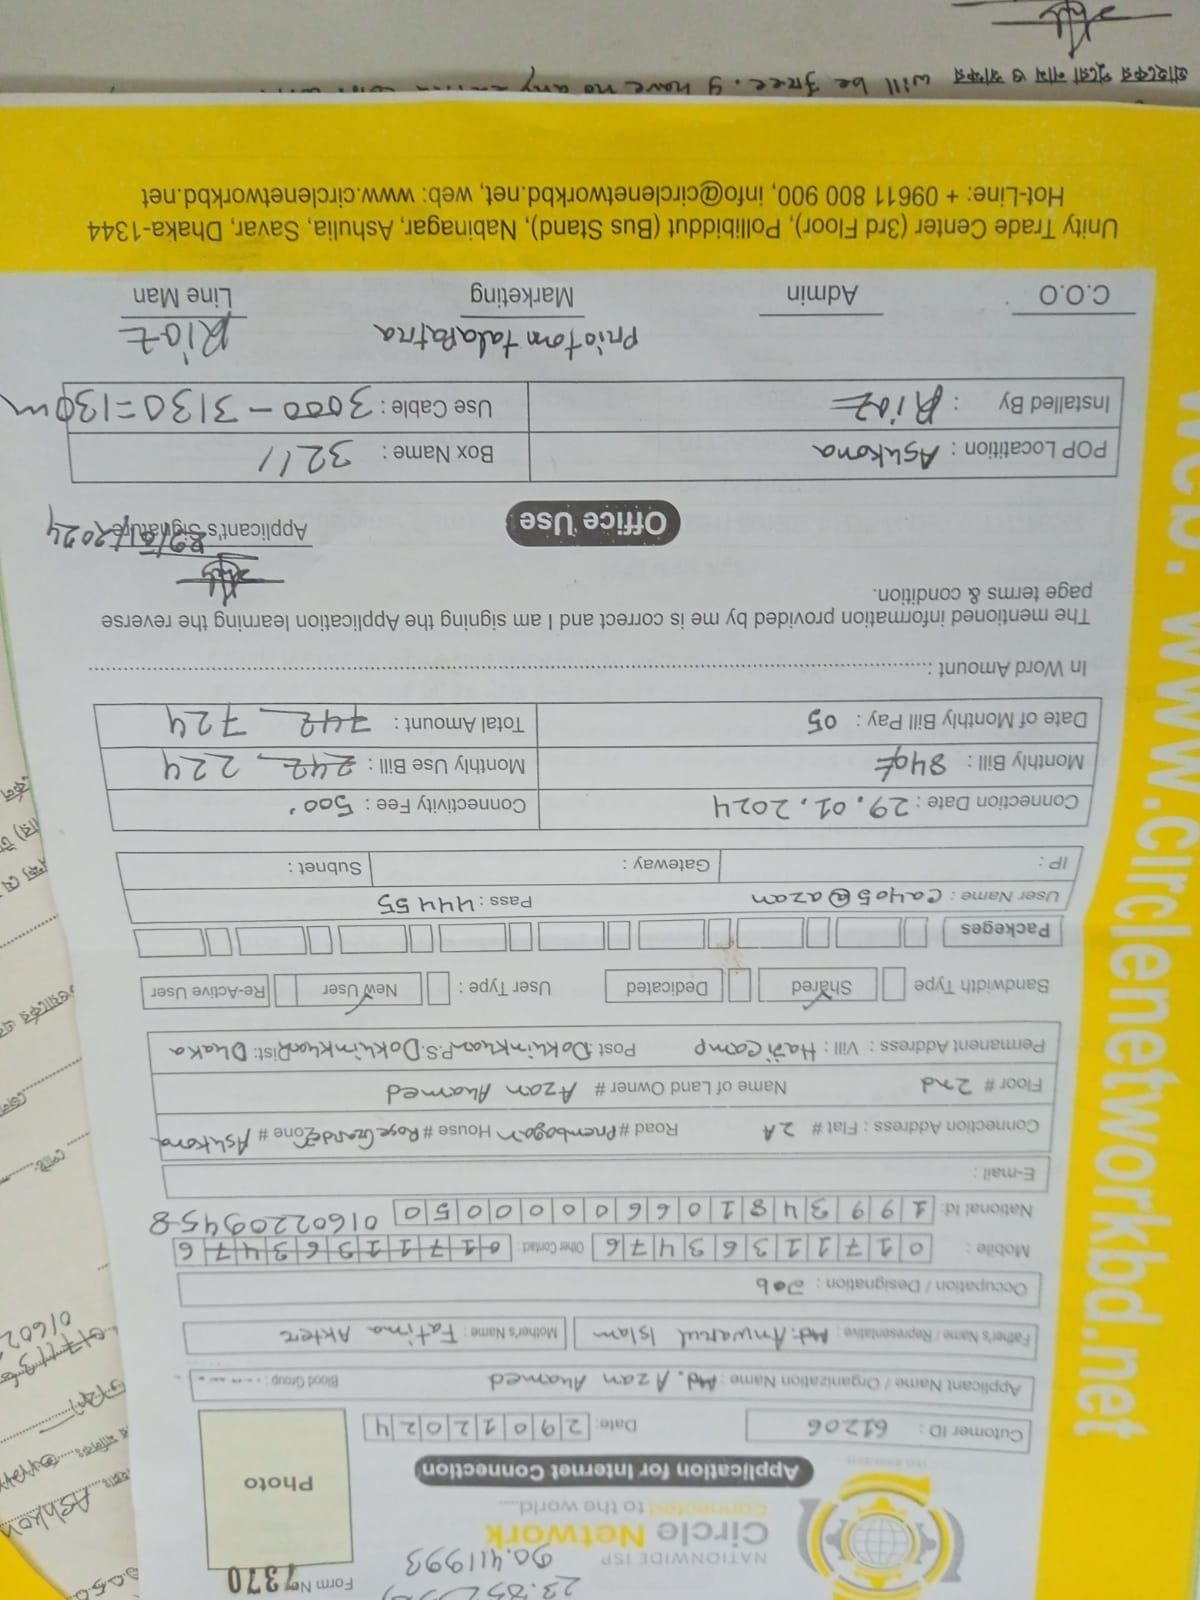 Form No 7370
90.411993
NATIONWIDE ISP
Circle Network
Connected to the world....
Photo
Application for Internet Connection
Cutomer ID : 61206 Date: 29012024
Applicant Name / Organization Name : Md. Azan Ahamed Blood Group :
Father's Name / Representative : Md: Anwarul Islam Mother's Name : Fatima Akter
Occupation / Designation : Job
Mobile : 01711363476 Other Contact 01711363476
National Id: 19934810660000050 01602209458
E-mail :
Connection Address : Flat # 2A Road # Prembagan House # Rose Garden Zone # Askona
Floor # 2nd Name of Land Owner # Azan Ahamed
Permanent Address : Vill : Haji Camp Post: Dokhinkhan P.S. Dokhinkhan Dist: Dhaka
Bandwidth Type Shared Dedicated User Type : New User Re-Active User
Packeges
User Name : ca405@azan Pass : 4455
IP : Gateway : Subnet :
Connection Date : 29.01.2024 Connectivity Fee : 500
Monthly Bill : 840 Monthly Use Bill : 242 224
Date of Monthly Bill Pay : 05 Total Amount : 742 724
In Word Amount :
The mentioned information provided by me is correct and I am signing the Application learning the reverse
page terms & condition.
Applicant's Signature 29/01/2024
Office Use
POP Locatition : Askona Box Name : 3211
Installed By : Riaz Use Cable : 3000 - 3130 = 130m
Priotom talapatra Riaz
C.O.O Admin Marketing Line Man
Unity Trade Center (3rd Floor), Pollibiddut (Bus Stand), Nabinagar, Ashulia, Savar, Dhaka-1344
Hot-Line: + 09611 800 900, info@circlenetworkbd.net, web: www.circlenetworkbd.net
web: www.circlenetworkbd.net
will be free. I have no any